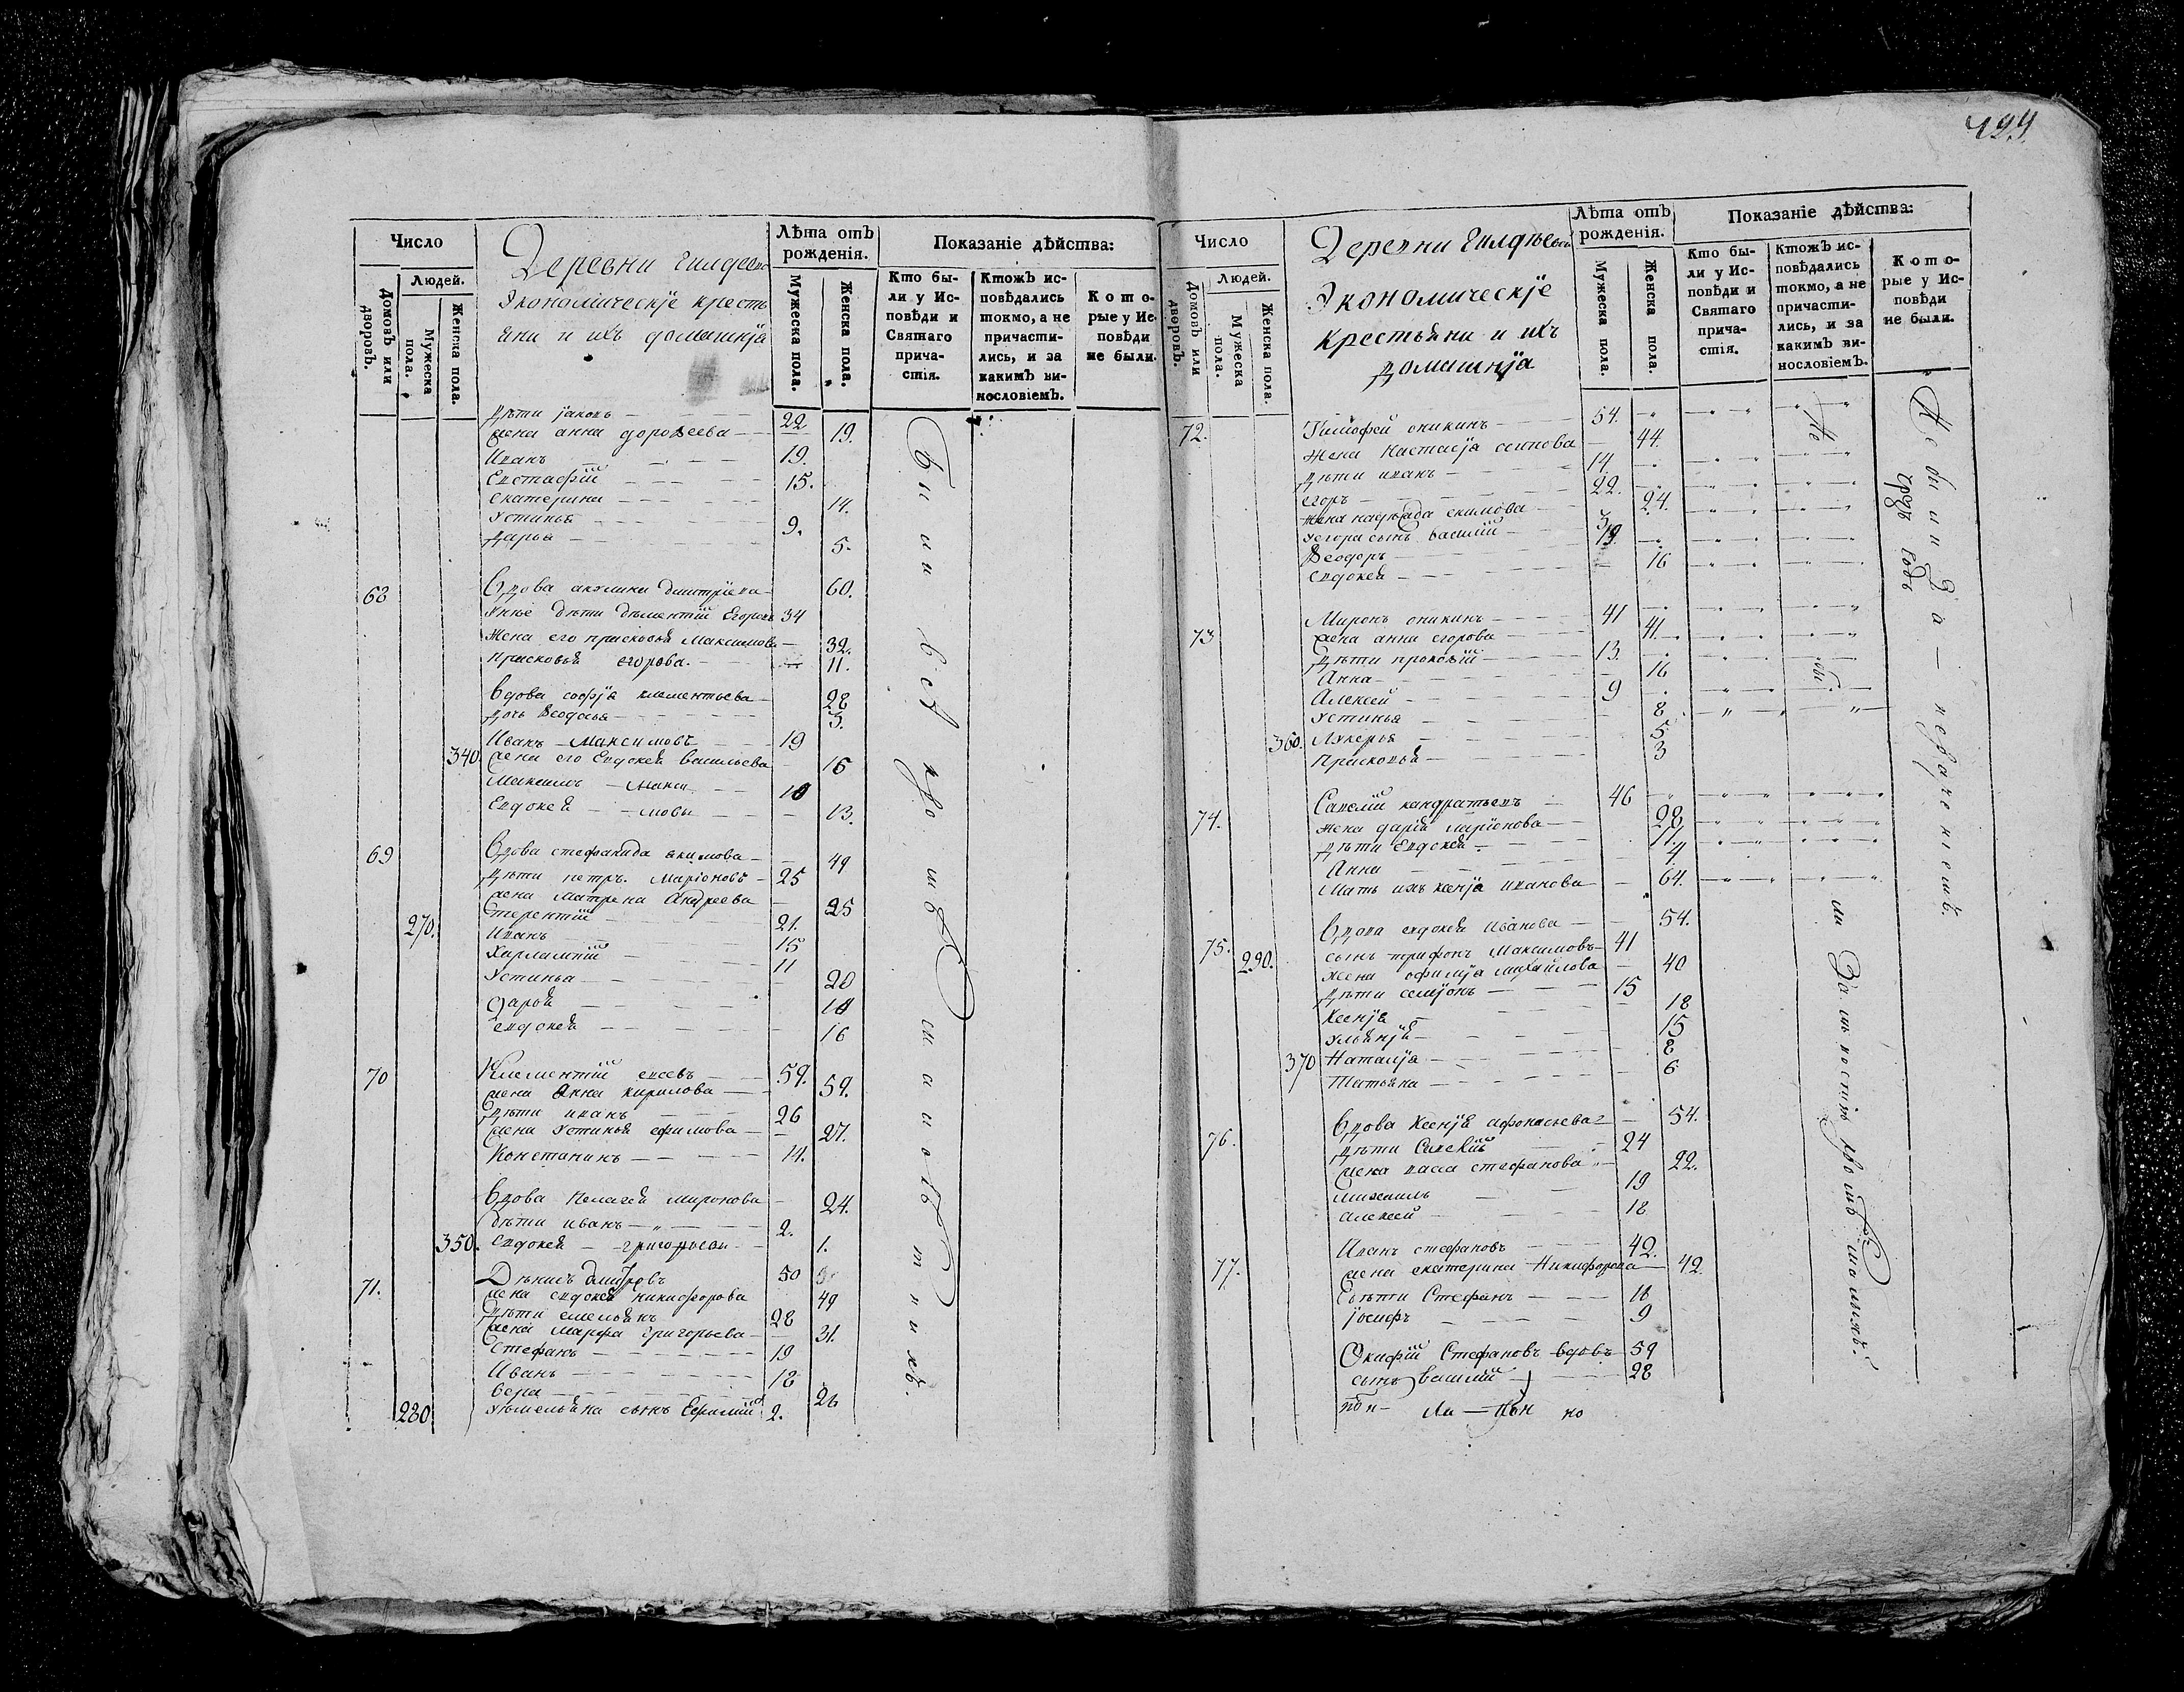 499.
Число
Людей.
Домовъ или дворовъ.
Мужеска пола.
Женска пола.
Деревни
Экономическіе кресть
яни и ихъ домашнія
Лѣта отъ рожденія.
Мужеска пола.
Женска пола.
Показаніе дѣйства:
Кто бы-
ли у Ис-
повѣди и
Святаго
прича-
стія.
Ктожъ ис-
повѣдались
токмо, а не
причасти-
лись, и за
какимъ ви-
нословіемъ.
Кото-
рые у Ис-
повѣди
не были.
дѣти іаковъ 22
жена анна дороѳеева 19.
Иванъ 19.
Евстафій 15.
екатерина 14.
Устинья 9.
дарья 5.
68 Вдова акулина дмитріева 60.
дѣти дѣментій Егоровъ 34
жена его прасковья Максимова 32.
прасковья егорова. 11.
Вдова софія клементьева 28
дочь Ѳеодосья 3.
Иванъ Максимовъ 19
340. жена его Евдокея васильева 16
Максимъ Макси 10
Евдокея мовы 13.
69 Вдова стефанида акимова 49
дѣти петръ Маріоновъ 25
жена Матрена Андреева 25
270. терентій 21.
Иванъ 15
Харлампій 11
Устинья 20
дарья 18
евдокея 16
70 Клементій 59.
жена Анна кирилова 59.
дѣти иванъ 26
жена Устинья ефимова 27.
Констанинъ 14.
Вдова Пелагея миронова 24.
дѣти иванъ 2.
350. евдокея григорьевы 1.
71. Дѣнисъ 50
жена евдокея никифорова 49
дѣти емельянъ 28
жена марфа григорьева 31.
Стефанъ 19
Иванъ 18
вера 26
280 Уѣмельяна сынъ Ефимій 2.
Число
Людей.
Домовъ или дворовъ.
Мужеска пола.
Женска пола.
Деревни
Экономическіе
крестьяни и ихъ
домашнія
Лѣта отъ рожденія.
Мужеска пола.
Женска пола.
Показаніе дѣйства:
Кто бы-
ли у Ис-
повѣди и
Святаго
прича-
стія.
Ктожъ ис-
повѣдались
токмо, а не
причасти-
лись, и за
какимъ ви-
нословіемъ.
Кото-
рые у Ис-
повѣди
не были.
72. Тимофей оникинъ 54.
жена Настасія осипова 44.
дѣти иванъ 14.
егоръ 22.
жена надѣжда екимова 24.
Уегора сынъ василій 3
Ѳеодоръ 19.
евдокея 16
73 Миронъ оникинъ 41
жена анна егорова 41.
дѣти прокофій 13.
Анна 16
Алексей 9
Устинья 8
360. Лукерья 5.
Прасковья 3
74. Савелій кандратьевъ 46
жена дарья 28
дѣти Евдокея 11.
Анна 4
Мать ихъ ксенія иванова 64.
75. Вдова евдокея Иванова 54.
290. сынъ трифонъ Максимовъ 41
жена офимія михайлова 40
дѣти семіонъ 15
Ксенія 18
Ульянія 15
370 Наталія 8
Татьяна 6
76. Вдова Ксенія афонасьева 54.
дѣти 24
жена васса стефанова 22.
михаилъ 19
алексей 18
77. Иванъ стефановъ 42.
жена екатерина Никифорова 42.
дѣти Стефанъ 18
іосифъ 9
Стефановъ вдовъ 59
сынъ василій 28